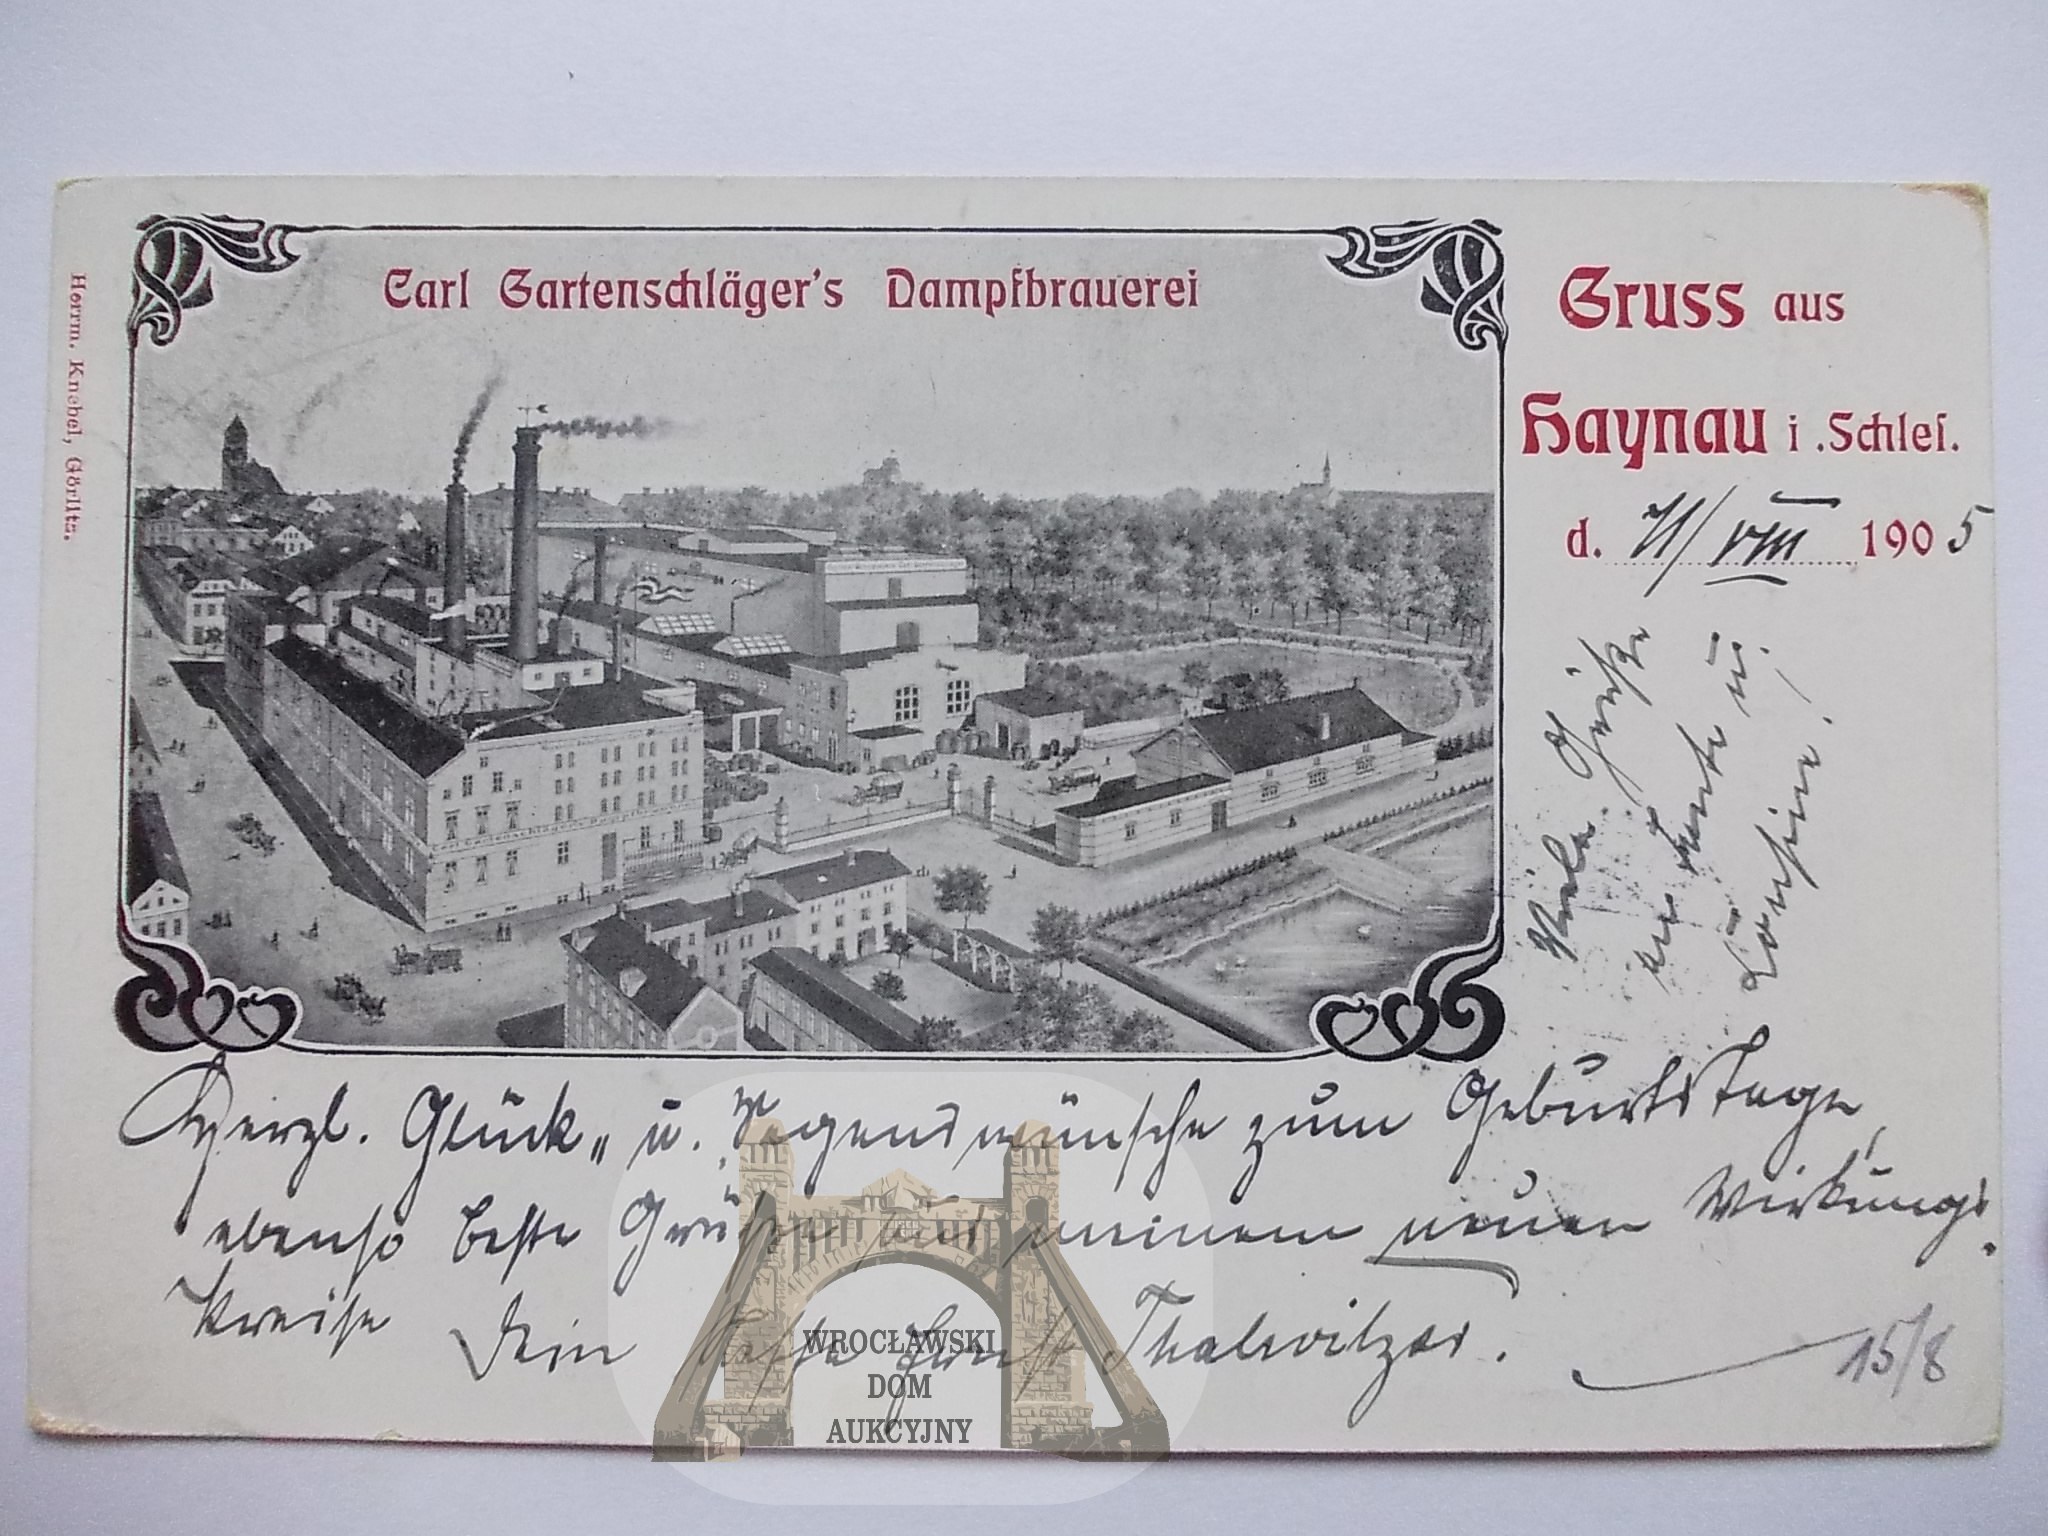 Carl Gartenschläger's Dampfbrauerei
Gruss aus
Haynau i. Schles.
d. 11/VIII 1905
Herrm. Knebel, Görlitz.
Viele Grüße
an Tante u.
Cousine!
Herzl. Glück- u. Segenswünsche zum Geburtstage,
ebenso beste Grüße aus meinem neuen Wirkungs-
kreise
Dein Thalwitzer.
15/8
WROCŁAWSKI
DOM
AUKCYJNY